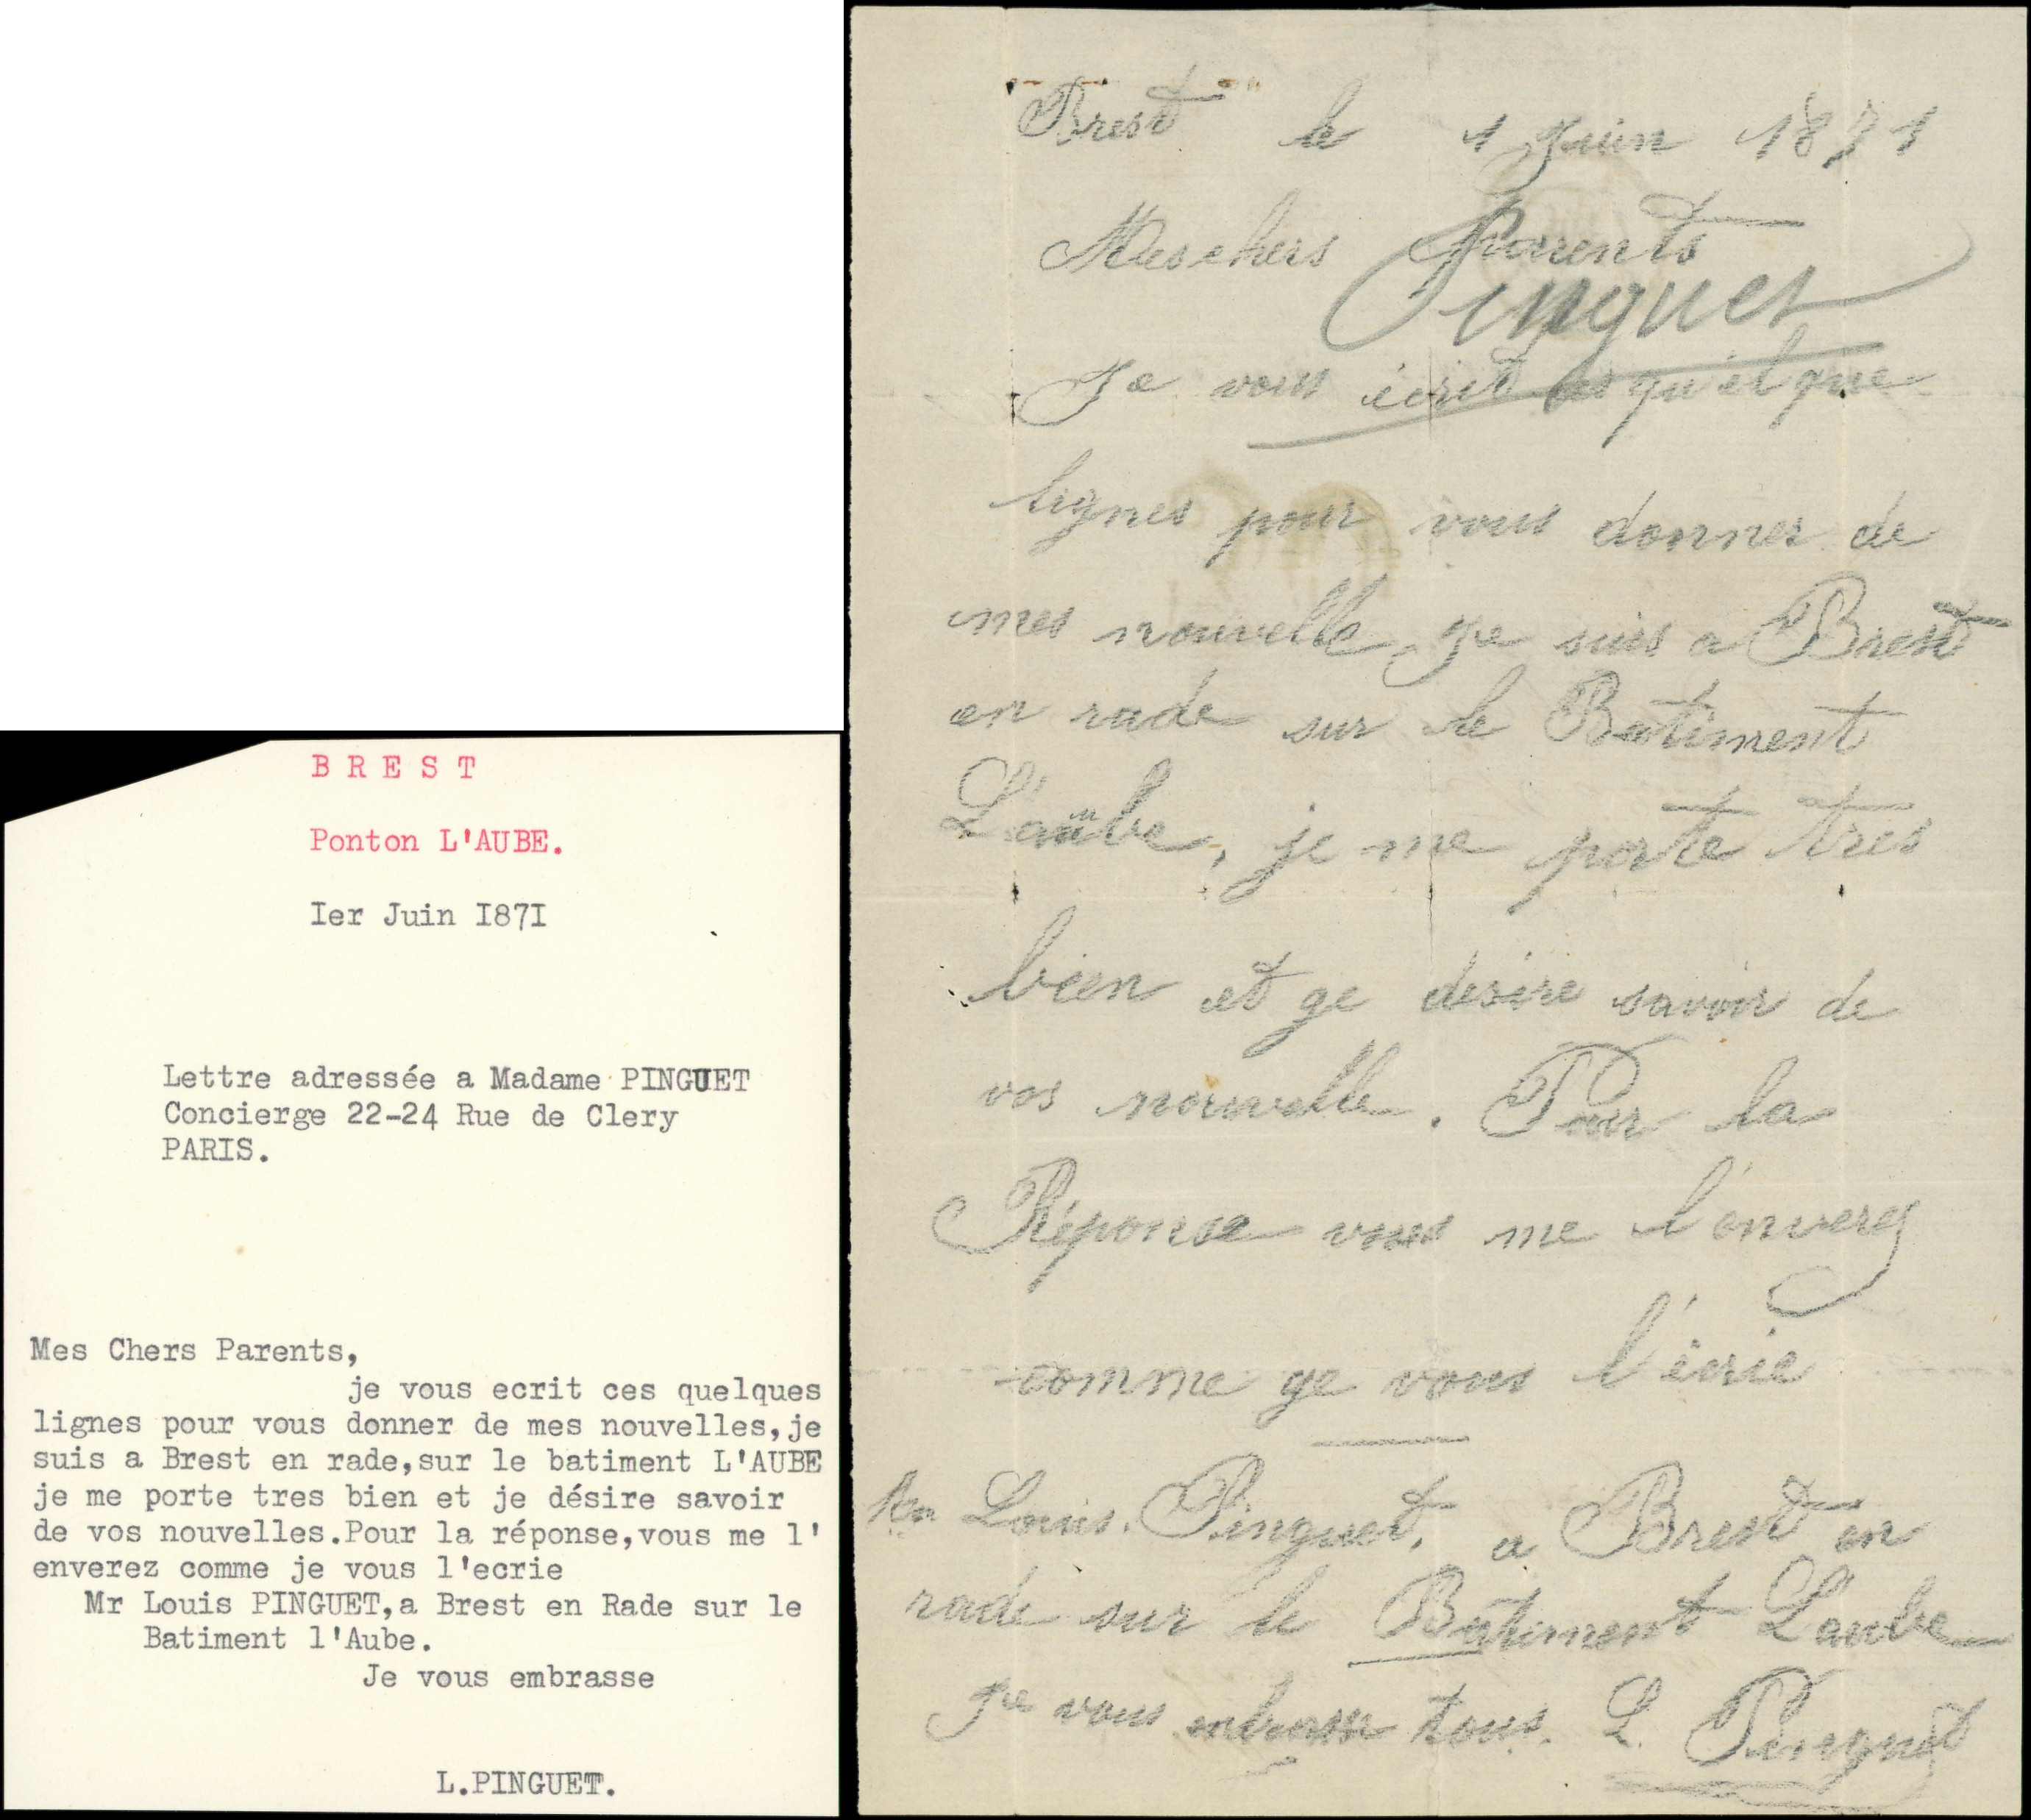 B R E S T
Ponton L'AUBE.
Ier Juin I87I
Lettre adressée a Madame PINGUET
Concierge 22-24 Rue de Clery
PARIS.
Mes Chers Parents,
je vous ecrit ces quelques
lignes pour vous donner de mes nouvelles,je
suis a Brest en rade,sur le batiment L'AUBE
je me porte tres bien et je désire savoir
de vos nouvelles.Pour la réponse,vous me l'
enverez comme je vous l'ecrie
Mr Louis PINGUET,a Brest en Rade sur le
Batiment l'Aube.
Je vous embrasse
L.PINGUET.
Brest le 1 Juin 1871
Mes chers Parents
Pinguet
Je vous écrit qu'élque
lignes pour vous donner de
mes nouvelle, je suis a Brest
en rade sur le Batiment
L'aube, je me porte tres
bien et ge desire savoir de
vos nouvelle. Pour la
Réponse vous me l'enverez
comme ge vous l'écrie
Louis. Pinguet, a Brest en
rade sur le Batiment Laube
Je vous embrasse tous. L. Pinguet